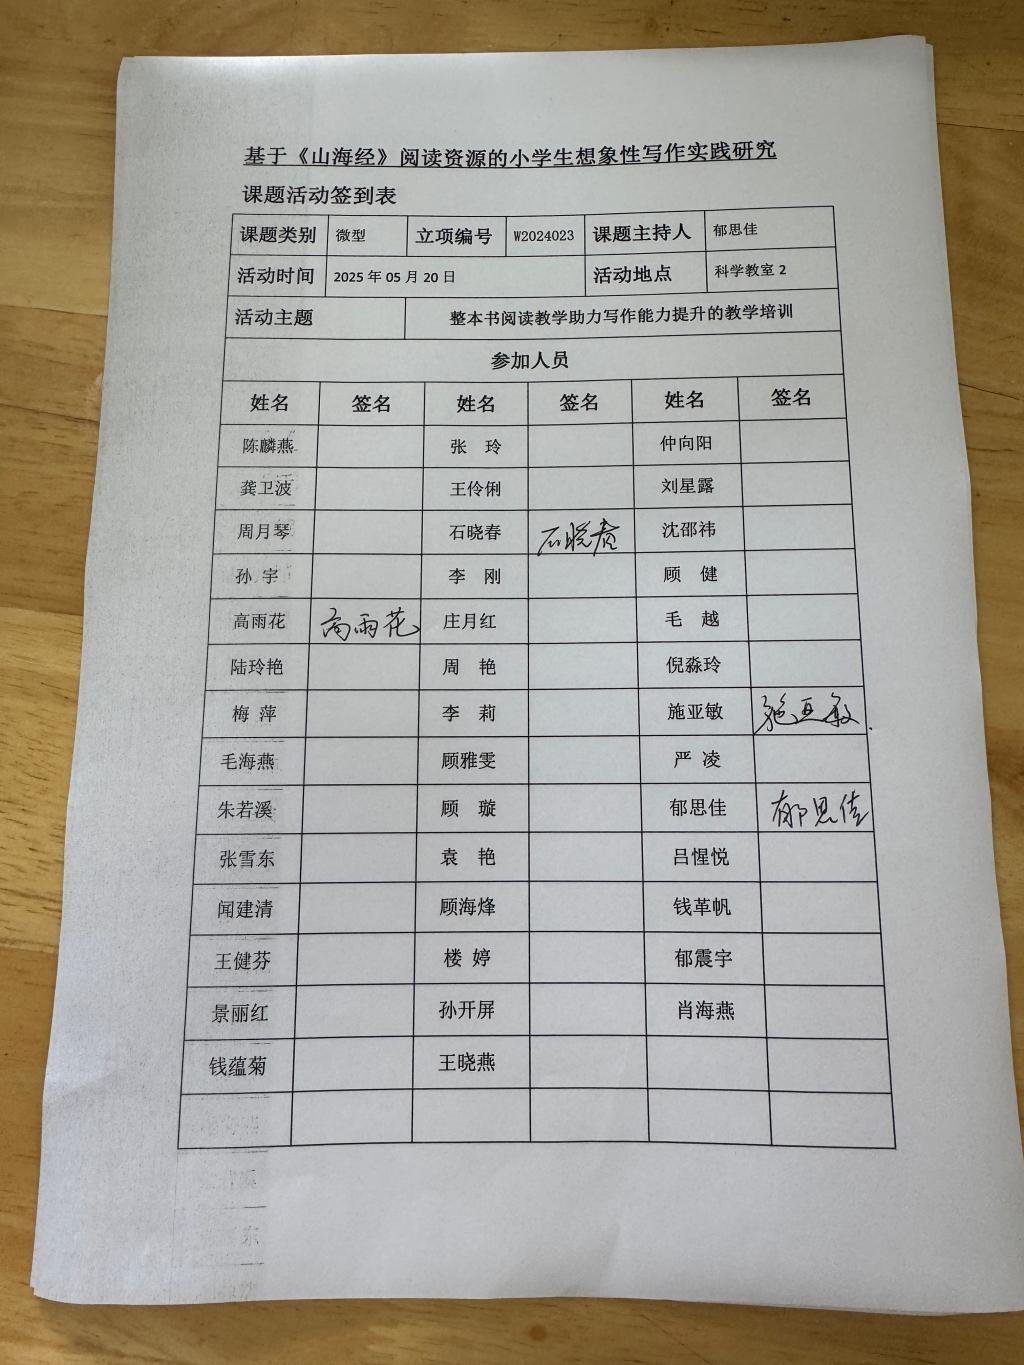 基于《山海经》阅读资源的小学生想象性写作实践研究
课题活动签到表
课题类别 微型 立项编号 W2024023 课题主持人 郁思佳
活动时间 2025年05月20日 活动地点 科学教室2
活动主题 整本书阅读教学助力写作能力提升的教学培训
参加人员
姓名 签名 姓名 签名 姓名 签名
陈麟燕 张 玲 仲向阳
龚卫波 王伶俐 刘星露
周月琴 石晓春 石晓春 沈邵祎
孙 宇 李 刚 顾 健
高雨花 高雨花 庄月红 毛 越
陆玲艳 周 艳 倪淼玲
梅 萍 李 莉 施亚敏 施亚敏
毛海燕 顾雅雯 严 凌
朱若溪 顾 璇 郁思佳 郁思佳
张雪东 袁 艳 吕惺悦
闻建清 顾海烽 钱革帆
王健芬 楼 婷 郁震宇
景丽红 孙开屏 肖海燕
钱蕴菊 王晓燕
东